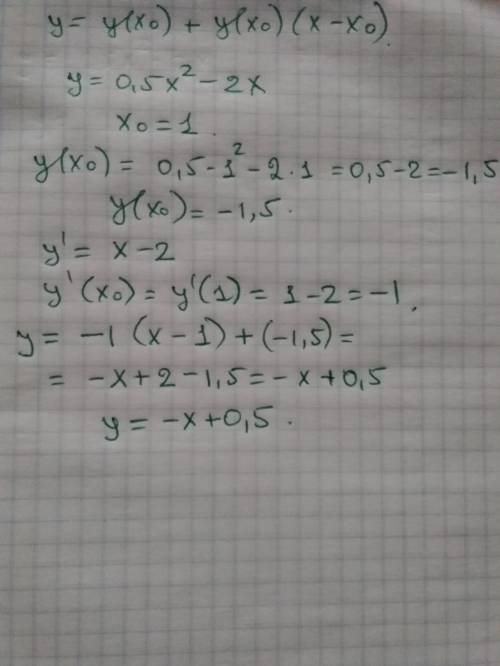 y = y(x₀) + y(x₀)(x - x₀).
y = 0,5x² - 2x
x₀ = 1.
y(x₀) = 0,5 - 1² - 2 · 1 = 0,5 - 2 = -1,5
y(x₀) = -1,5.
y' = x - 2
y'(x₀) = y'(1) = 1 - 2 = -1.
y = -1 (x - 1) + (-1,5) =
= -x + 2 - 1,5 = -x + 0,5
y = -x + 0,5.